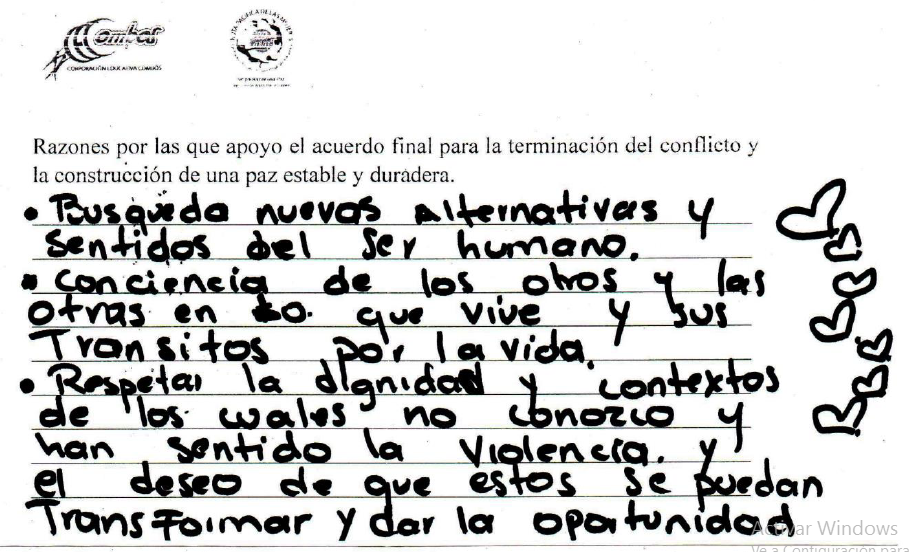 Combos
CORPORACIÓN EDUCATIVA COMBOS
Razones por las que apoyo el acuerdo final para la terminación del conflicto y
la construcción de una paz estable y duradera.
• Busqueda nuevas Alternativas y
sentidos del ser humano.
• conciencia de los otros y las
otras en lo que vive y sus
Transitos por la vida.
• Respetar la dignidad y contextos
de los cuales no conozco y
han sentido la violencia. y
el deseo de que estos se puedan
Transformar y dar la oportunidad
Activar Windows